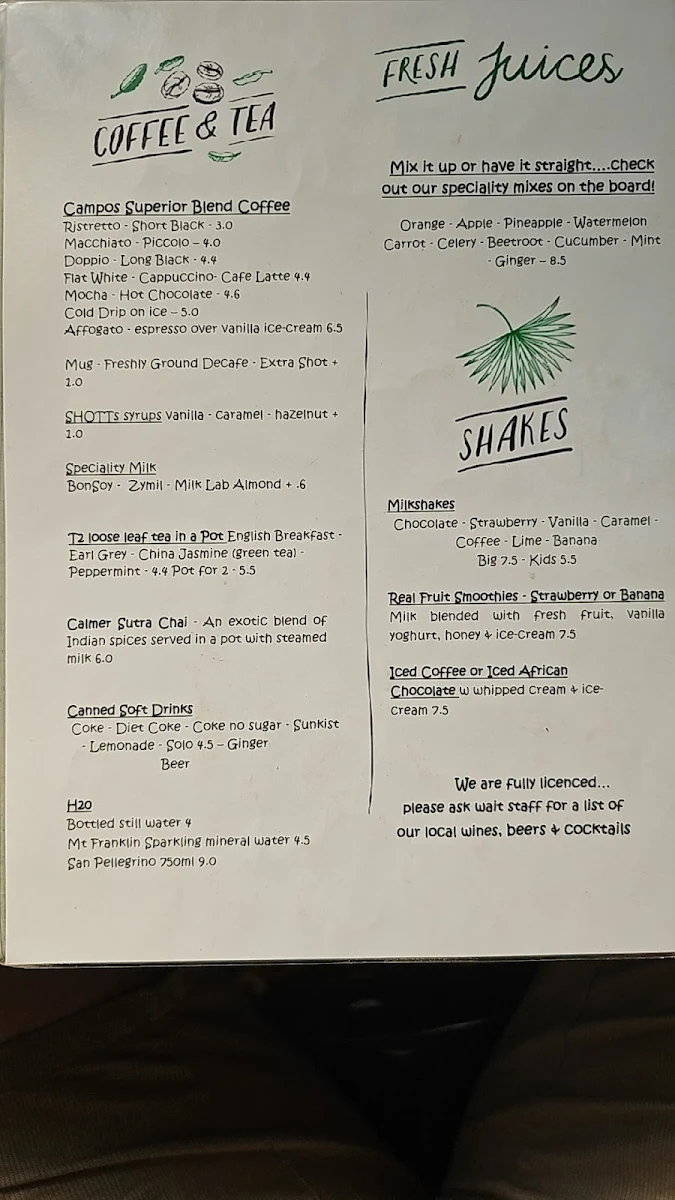 COFFEE & TEA
Campos Superior Blend Coffee
Ristretto - Short Black - 3.0
Macchiato - Piccolo – 4.0
Doppio - Long Black - 4.4
Flat White - Cappuccino- Cafe Latte 4.4
Mocha - Hot Chocolate - 4.6
Cold Drip on ice – 5.0
Affogato - espresso over vanilla ice-cream 6.5
Mug - Freshly Ground Decafe - Extra Shot +
1.0
SHOTTs syrups vanilla - caramel - hazelnut +
1.0
Speciality Milk
BonSoy - Zymil - Milk Lab Almond + .6
T2 loose leaf tea in a Pot English Breakfast -
Earl Grey - China Jasmine (green tea) -
Peppermint - 4.4 Pot for 2 - 5.5
Calmer Sutra Chai - An exotic blend of
Indian spices served in a pot with steamed
milk 6.0
Canned Soft Drinks
Coke - Diet Coke - Coke no sugar - Sunkist
- Lemonade - Solo 4.5 – Ginger
Beer
H20
Bottled still water 4
Mt Franklin Sparkling mineral water 4.5
San Pellegrino 750ml 9.0
FRESH Juices
Mix it up or have it straight....check
out our speciality mixes on the board!
Orange - Apple - Pineapple - Watermelon
Carrot - Celery - Beetroot - Cucumber - Mint
- Ginger – 8.5
SHAKES
Milkshakes
Chocolate - Strawberry - Vanilla - Caramel -
Coffee - Lime - Banana
Big 7.5 - Kids 5.5
Real Fruit Smoothies - Strawberry or Banana
Milk blended with fresh fruit, vanilla
yoghurt, honey & ice-cream 7.5
Iced Coffee or Iced African
Chocolate w whipped cream & ice-
cream 7.5
We are fully licenced...
please ask wait staff for a list of
our local wines, beers & cocktails